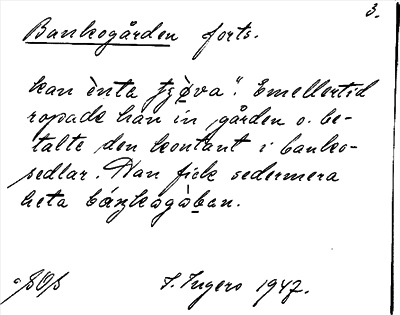 3.
Bankogården forts.
kan ènta tjọ̀va". Emellertid
ropade han in gården o. be-
talte den kontant i banko-
sedlar. Han fick sedermera
heta báŋkogọ̀ban.
S. Ingers 1947.